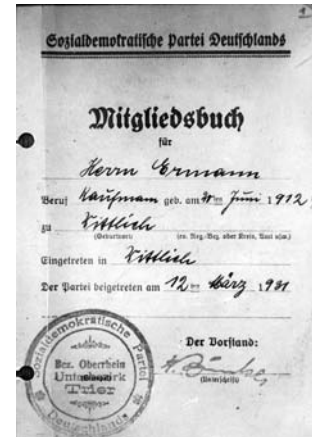 1
Sozialdemokratische Partei Deutschlands
Mitgliedsbuch
für
Herrn Ermann
Beruf Kaufmann geb. am Juni 1912
zu Wittlich
(Geburtsort) (ev. Reg.-Bez. oder Kreis, Amt usw.)
Eingetreten in Wittlich
Der Partei beigetreten am 12 März 1931
Der Vorstand:
(Unterschrift)
Sozialdemokratische Partei
Bez. Oberrhein
Unterbezirk
Trier
Deutschlands